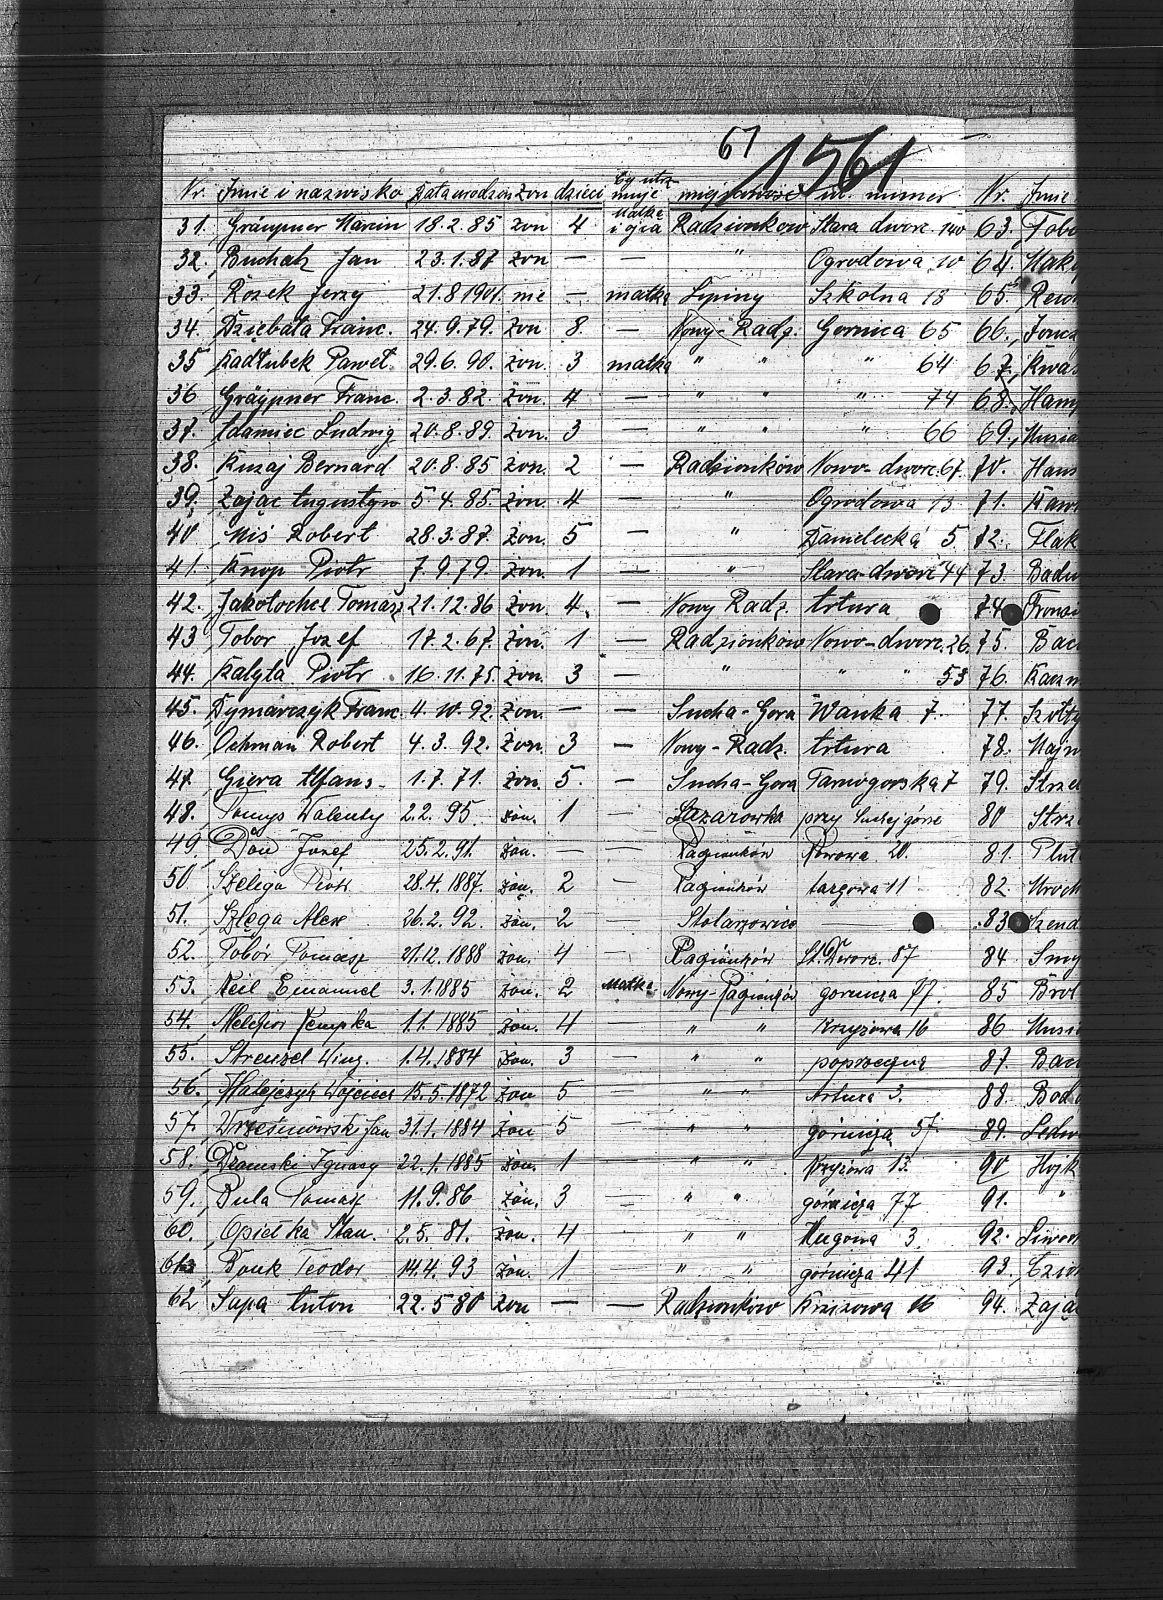 67 1561
Nr. Imie i nazwisko Data urodzen żon dzieci czy utrzymuje miejscowość ul. numer Nr. Imie
31. Gräupner Marcin 18.2.85 żon 4 Matkę i ojca Radzionków Stara dworc. 140 63. Tobo
32. Buchacz Jan 23.1.87 żon — — " Ogrodowa 10 64. Mak
33. Rozek Jerzy 21.8 1901. nie — matka Lipiny Szkolna 13 65.
34. Dziębała Franc. 24.9.79. żon 8. — Nowy-Radz. Gornica 65 66.
35 Kadłubek Paweł 29.6.90. żon. 3 matka " " " 64 67.
36 Gräupner Franc. 2.3.82. żon. 4 — " " " 74 68. Hamp
37. Adamiec Ludwig 20.8.89. żon. 3 — " " " 66 69. Musia
38. Kuzaj Bernard 20.8.85 żon. 2 — Radzionków Nowo-dworc. 67. 70. Haus
39. Zając Augustyn 5 4.85. żon. 4 — " Ogrodowa 13 71. Kaw
40 Miś Robert 28.3.87. żon. 5 — " Danielecka 5. 72. Flak
41. Knop Piotr 7.9.79. żon. 1 — " Stara-dworc 44 73. Badu
42. Jakotochce Tomasz 21.12.86 żon. 4. — Nowy Radz. Artura 74
43 Tobor Jozef 17.2.67. żon. 1 — Radzionków Nowo-dworc. 26. 75. Bac
44. Kalyta Piotr 16.11.75. żon. 3 — " " " 53 76. Kaczm
45. Dymarczyk Franc. 4.10.92. żon. — — Sucha-Gora Wanka 7. 77.
46. Ochman Robert 4.3.92. żon. 3 — Nowy-Radz. Artura 78. Majw
47. Giera Alfons 1.7.71. żon. 5. — Sucha-Gora Tarnogorska 7 79. Strze
48. Walenty 2.2.95 żon. 1 — Lazarowka przy Suchej górze 80 Strz
49 Józef 25.2.91. żon. — — Ragionków 20. 81. Plut
50 Szeliga Piotr 28.4.1887. żon. 2 — Ragionków targowa 11 82. Mroch
51. Szlęga Alex 26.2.92. żon. 2 — Stolarzowice 83
52. Tobór Tomasz 21.12.1888 żon. 4 — Ragionków St. Dworc. 87 84. Smy
53. Keil Emanuel 3.1.1885 żon. 2 Matka Nowy-Ragionków gornicza 77. 85 Brol
54. Melchior Kempka 1.1.1885 żon. 4 — " " Krzyżowa 16 86 Musi
55. Strenzel Winz. 1.4.1884 żon. 3 — " " poprzeczna 87. Bac
56. Matejczyk Wojciech 15.5.1872 żon 5 — " " Artura 3. 88. Bod
57. Wrześniowski Jan 31.1.1884 żon 5 — " " górnicza 57. 89. Ledw
58. Dramski Ignacy 22.1.1885 żon. 1 — " " Krzyżowa 13. 90 Hojk
59. Bula Tomasz 11.9.86 żon. 3 — " " górnicza 77 91. "
60. Opiełka Stan. 2.5.81. żon. 4 — " " 3. 92. Siwo
61. Bonk Teodor 14.4.93 żon. 1 — " " górnicza 41 93.
62 Sapa Anton 22.5 80 żon — — Radzionków Krzizowa 16 94. Zają